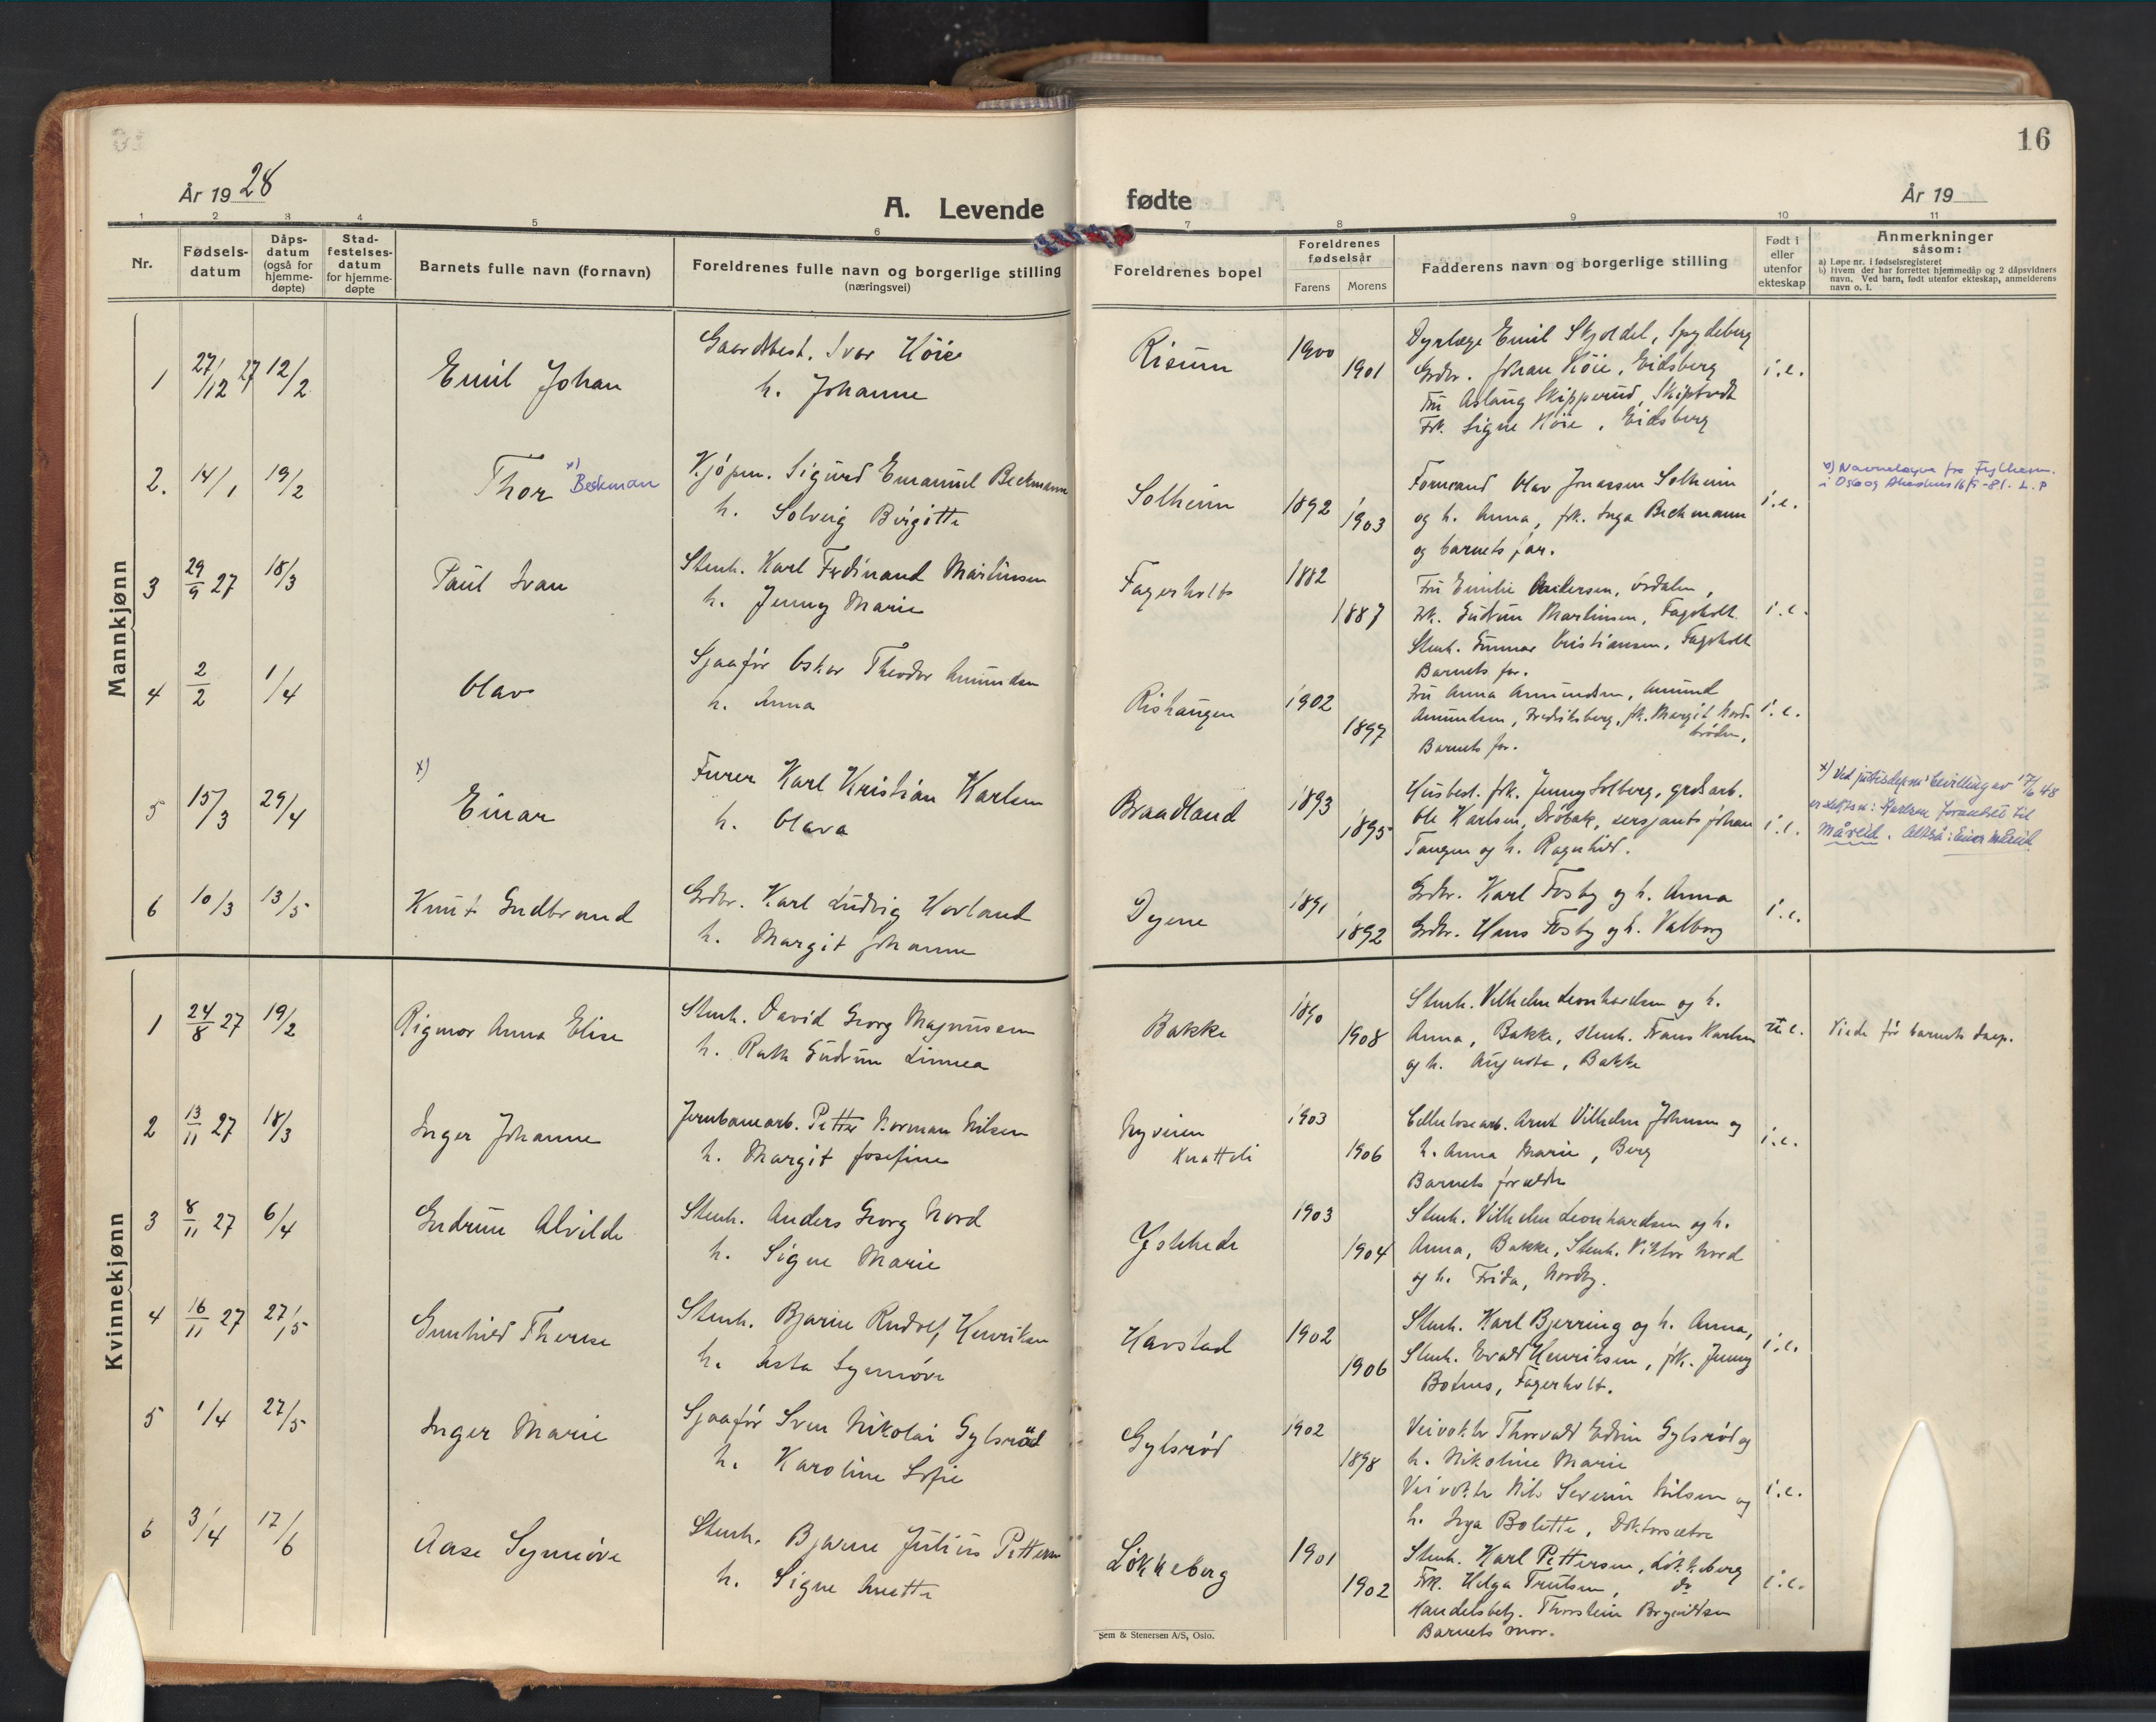 16
År 1928
A. Levende
fødte
År 19
1 2 3 4 5 6 7 8 9 10 11
Nr.
Fødsels-
datum
Dåps-
datum
(også for
hjemme-
døpte)
Stad-
festelses-
datum
for hjemme-
døpte
Barnets fulle navn (fornavn)
Foreldrenes fulle navn og borgerlige stilling
(næringsvei)
Foreldrenes bopel
Foreldrenes
fødselsår
Farens Morens
Fadderens navn og borgerlige stilling
Født i
eller
utenfor
ekteskap
Anmerkninger
såsom:
a) Løpe nr. i fødselsregisteret
b) Hvem der har forrettet hjemmedåp og 2 dåpsvidners
navn. Ved barn, født utenfor ekteskap, anmelderens
navn o. l.
Mannkjønn
1 27/12 27 12/2 Emil Johan
Gaardbest. Ivar Höie
h. Johanne
Risum 1900 1901
Dyrlæge Emil Skjoldel, Spydeberg
Grdbr. Johan Höie, Eidsberg
Fru Aslaug Skipperud, Skiptvedt
Frk. Signe Höie, Eidsberg
i.e.
2. 14/1 19/2 Thor x) Beckman
Kjöpm. Sigurd Emanuel Beckmann
h. Solveig Birgitte
Solheim 1892 1903
Formand Olav Jonassen Solheim
og h. Anna, frk. Inga Beckmann
og barnets far.
i.e.
x) Navnelapve fra Fylkesm.
i Oslo og Akershus 16/5-81. L.P
3 29/9 27 18/3 Paul Ivan
Stenh. Karl Ferdinand Martinsen
h. Jenny Marie
Fagerholt 1882 1887
Fru Emilie Andersen, Ördalen,
Frk. Gudrun Martinsen, Fagerholt
Stenh. Gunnar Kristiansen, Fagerholt
Barnets far.
i.e.
4 2/2 1/4 Olav
Sjaaför Oskar Theodor Amundsen
h. Anna
Rishaugen 1902 1897
Fru Anna Amundsen, Amund
Amundsen, Fredriksberg, frk. Margit Nord-
bröden,
Barnets far.
i.e.
5 15/3 29/4 x) Einar
Furer Karl Kristian Karlsen
h. Olava
Braadland 1893 1895
Husbest. frk. Jenny Solberg, grdsarb.
Ole Karlsen, Dröbak, sersjant Johan
Tangen og h. Ragnhild.
i.e.
x) Ved justisdepts bevilling av 17/6 48
er slektsn.: Karlsen forandret til
Måreid. Altså: Einar Måreid
6 10/3 13/5 Knut Gudbrand
Grdbr. Karl Ludvig Hovland
h. Margit Johanne
Dyene 1891 1892
Grdbr. Karl Fosby og h. Anna
Grdbr. Hans Fosby og h. Valborg
i.e.
Kvinnekjønn
1 24/8 27 19/2 Rigmor Anna Elise
Stenh. David Georg Magnussen
h. Ruth Gudrun Linnea
Bakke 1890 1908
Stenh. Vilhelm Leonhardsen og h.
Anna, Bakke, stenh. Frans Karlsen
og h. Augusta, Bakke
u.e.
Viede før barnets daap.
2 13/11 27 18/3 Inger Johanne
Jernbanearb. Petter Norman Nilsen
h. Margit Josefine
Nyveien
Knatteli
1903 1906
Cellulosearb. Arnt Vilhelm Johnsen og
h. Anna Marie, Berg
Barnets forældre
i.e.
3 8/11 27 6/4 Gudrun Alvilde
Stenh. Anders Georg Nord
h. Signe Marie
1903 1904
Stenh. Vilhelm Leonhardsen og h.
Anna, Bakke, Stenh. Viktor Nord
og h. Frida, Nordby.
4 16/11 27 27/5 Gunhild Therese
Stenh. Bjarne Rudolf Henriksen
h. Asta Synnöve
Havstad 1902 1906
Stenh. Karl Bjerring og h. Anna,
Stenh. Evald Henriksen, frk. Jenny
Botnes, Fagerholt.
i.e.
5 1/4 27/5 Inger Marie
Sjaafför Sven Nikolai Gylsröd
h. Karoline Sofie
Gylsröd 1902 1898
Veivokter Thorvald Edvin Gylsröd og
h. Nikoline Marie
Veivokter Nils Severin Nilsen og
h. Inga Bolette, Doktorsætre
i.e.
6 3/4 17/6 Aase Synnöve
Stenh. Bjarne Julius Pettersen
h. Signe Anette
Lökkeberg 1901 1902
Stenh. Karl Pettersen, Lökkeberg
Frk. Helga Trulsen, do
Handelsbetj. Thorstein Brynildsen
Barnets mor.
i.e.
Sem & Stenersen A/S, Oslo.